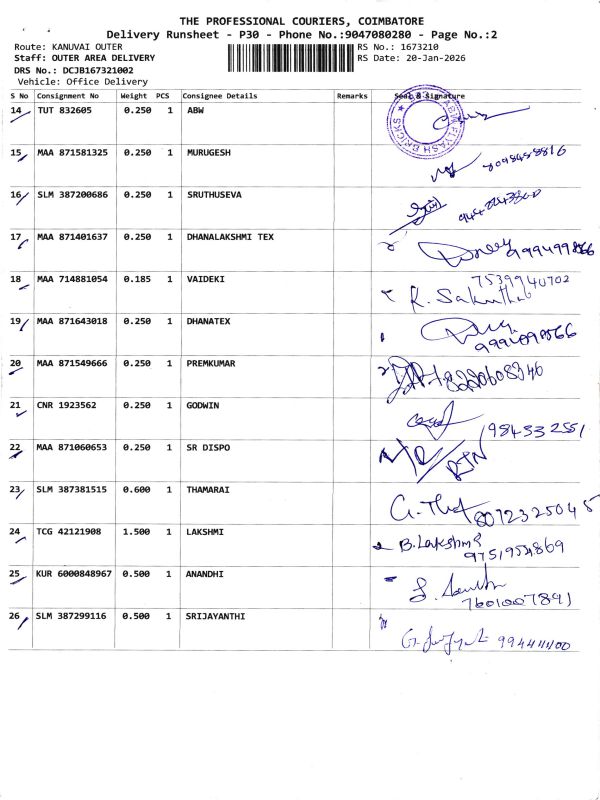 THE PROFESSIONAL COURIERS, COIMBATORE
Delivery Runsheet - P30 - Phone No.:9047080280 - Page No.:2
Route: KANUVAI OUTER RS No.: 1673210
Staff: OUTER AREA DELIVERY RS Date: 20-Jan-2026
DRS No.: DCJB167321002
Vehicle: Office Delivery
S No Consignment No Weight PCS Consignee Details Remarks Seal & Signature
14 TUT 832605 0.250 1 ABW
15 MAA 871581325 0.250 1 MURUGESH
16 SLM 387200686 0.250 1 SRUTHUSEVA
17 MAA 871401637 0.250 1 DHANALAKSHMI TEX
18 MAA 714881054 0.185 1 VAIDEKI 7539940702
19 MAA 871643018 0.250 1 DHANATEX
20 MAA 871549666 0.250 1 PREMKUMAR 8220608346
21 CNR 1923562 0.250 1 GODWIN
22 MAA 871060653 0.250 1 SR DISPO N/R RTN
23 SLM 387381515 0.600 1 THAMARAI 8072325045
24 TCG 42121908 1.500 1 LAKSHMI B. Lakshmi
25 KUR 6000848967 0.500 1 ANANDHI 7601007891
26 SLM 387299116 0.500 1 SRIJAYANTHI